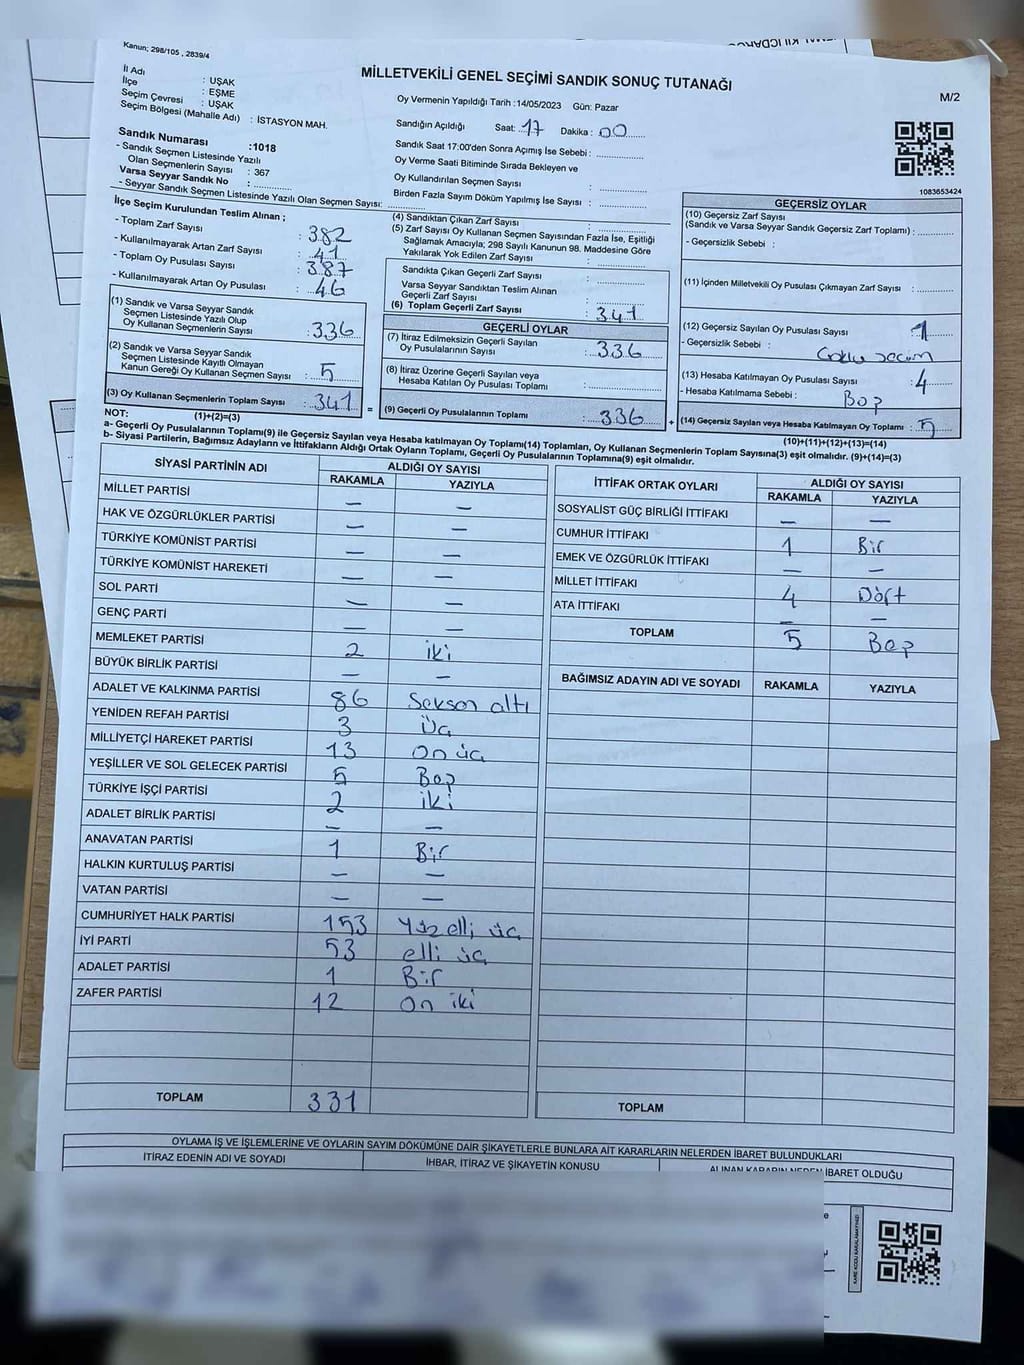 Kanun; 298/105 , 2839/4
MİLLETVEKİLİ GENEL SEÇİMİ SANDIK SONUÇ TUTANAĞI
M/2
İl Adı : UŞAK
İlçe : EŞME
Seçim Çevresi : UŞAK
Seçim Bölgesi (Mahalle Adı) : İSTASYON MAH.
Sandık Numarası :1018
- Sandık Seçmen Listesinde Yazılı
Olan Seçmenlerin Sayısı : 367
Varsa Seyyar Sandık No :
- Seyyar Sandık Seçmen Listesinde Yazılı Olan Seçmen Sayısı:
Oy Vermenin Yapıldığı Tarih :14/05/2023 Gün: Pazar
Sandığın Açıldığı Saat: 17 Dakika : 00
Sandık Saat 17:00'den Sonra Açımış İse Sebebi :
Oy Verme Saati Bitiminde Sırada Bekleyen ve
Oy Kullandırılan Seçmen Sayısı :
Birden Fazla Sayım Döküm Yapılmış İse Sayısı :
1083653424
İlçe Seçim Kurulundan Teslim Alınan ;
- Toplam Zarf Sayısı : 382
- Kullanılmayarak Artan Zarf Sayısı : 41
- Toplam Oy Pusulası Sayısı : 387
- Kullanılmayarak Artan Oy Pusulası : 46
(1) Sandık ve Varsa Seyyar Sandık
Seçmen Listesinde Yazılı Olup
Oy Kullanan Seçmenlerin Sayısı : 336
(2) Sandık ve Varsa Seyyar Sandık
Seçmen Listesinde Kayıtlı Olmayan
Kanun Gereği Oy Kullanan Seçmen Sayısı : 5
(3) Oy Kullanan Seçmenlerin Toplam Sayısı : 341
(4) Sandıktan Çıkan Zarf Sayısı :
(5) Zarf Sayısı Oy Kullanan Seçmen Sayısından Fazla İse, Eşitliği
Sağlamak Amacıyla; 298 Sayılı Kanunun 98. Maddesine Göre
Yakılarak Yok Edilen Zarf Sayısı :
Sandıkta Çıkan Geçerli Zarf Sayısı :
Varsa Seyyar Sandıktan Teslim Alınan
Geçerli Zarf Sayısı :
(6) Toplam Geçerli Zarf Sayısı : 341
GEÇERLİ OYLAR
(7) İtiraz Edilmeksizin Geçerli Sayılan
Oy Pusulalarının Sayısı : 336
(8) İtiraz Üzerine Geçerli Sayılan veya
Hesaba Katılan Oy Pusulası Toplamı :
= (9) Geçerli Oy Pusulalarının Toplamı : 336 +
GEÇERSİZ OYLAR
(10) Geçersiz Zarf Sayısı
(Sandık ve Varsa Seyyar Sandık Geçersiz Zarf Toplamı) :
- Geçersizlik Sebebi :
(11) İçinden Milletvekili Oy Pusulası Çıkmayan Zarf Sayısı :
(12) Geçersiz Sayılan Oy Pusulası Sayısı : 1
- Geçersizlik Sebebi : Çoklu seçim
(13) Hesaba Katılmayan Oy Pusulası Sayısı : 4
- Hesaba Katılmama Sebebi : Boş
(14) Geçersiz Sayılan veya Hesaba Katılmayan Oy Toplamı : 5
NOT: (1)+(2)=(3)
(10)+(11)+(12)+(13)=(14)
a- Geçerli Oy Pusulalarının Toplamı(9) ile Geçersiz Sayılan veya Hesaba katılmayan Oy Toplamı(14) Toplamları, Oy Kullanan Seçmenlerin Toplam Sayısına(3) eşit olmalıdır. (9)+(14)=(3)
b- Siyasi Partilerin, Bağımsız Adayların ve İttifakların Aldığı Ortak Oyların Toplamı, Geçerli Oy Pusulalarının Toplamına(9) eşit olmalıdır.
SİYASİ PARTİNİN ADI ALDIĞI OY SAYISI
RAKAMLA YAZIYLA
MİLLET PARTİSİ — —
HAK VE ÖZGÜRLÜKLER PARTİSİ — —
TÜRKİYE KOMÜNİST PARTİSİ — —
TÜRKİYE KOMÜNİST HAREKETİ — —
SOL PARTİ — —
GENÇ PARTİ — —
MEMLEKET PARTİSİ 2 iki
BÜYÜK BİRLİK PARTİSİ — —
ADALET VE KALKINMA PARTİSİ 86 Seksen altı
YENİDEN REFAH PARTİSİ 3 Üç
MİLLİYETÇİ HAREKET PARTİSİ 13 On üç
YEŞİLLER VE SOL GELECEK PARTİSİ 5 Beş
TÜRKİYE İŞÇİ PARTİSİ 2 iki
ADALET BİRLİK PARTİSİ — —
ANAVATAN PARTİSİ 1 Bir
HALKIN KURTULUŞ PARTİSİ — —
VATAN PARTİSİ — —
CUMHURİYET HALK PARTİSİ 153 Yüz elli üç
İYİ PARTİ 53 elli üç
ADALET PARTİSİ 1 Bir
ZAFER PARTİSİ 12 On iki
TOPLAM 331
İTTİFAK ORTAK OYLARI ALDIĞI OY SAYISI
RAKAMLA YAZIYLA
SOSYALİST GÜÇ BİRLİĞİ İTTİFAKI — —
CUMHUR İTTİFAKI 1 Bir
EMEK VE ÖZGÜRLÜK İTTİFAKI — —
MİLLET İTTİFAKI 4 Dört
ATA İTTİFAKI — —
TOPLAM 5 Beş
BAĞIMSIZ ADAYIN ADI VE SOYADI RAKAMLA YAZIYLA
TOPLAM
OYLAMA İŞ VE İŞLEMLERİNE VE OYLARIN SAYIM DÖKÜMÜNE DAİR ŞİKAYETLERLE BUNLARA AİT KARARLARIN NELERDEN İBARET BULUNDUKLARI
İTİRAZ EDENİN ADI VE SOYADI İHBAR, İTİRAZ VE ŞİKAYETİN KONUSU ALINAN KARARIN NEDEN İBARET OLDUĞU